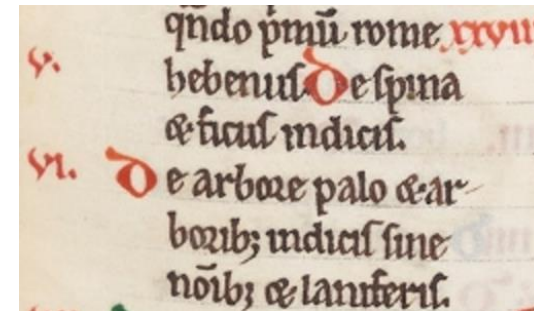 qndo pͥmū rome xxviii
v. hebenus De spina
& ficus indicis.
vi. De arbore palo & ar-
borib; indicis sine
nōib; & laniferis.